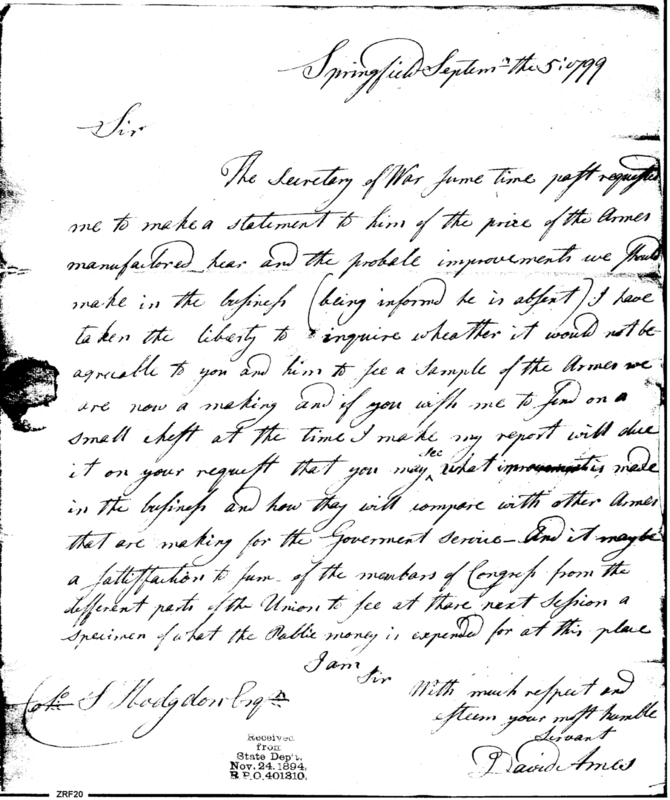 Springfield Septemr the 5: 1799
Sir
The Secretary of War sume time past requested
me to make a statement to him of the price of the Armes
manufactored hear and the probale improvements we should
make in the business (being informd he is absent) I have
taken the liberty to inquire wheather it would not be
agreeable to you and him to see a sample of the Armes we
are now a making and if you wish me to send on a
small chest at the time I make my report will due
it on your request that you may see what improvement is made
in the business and how they will compare with other Armes
that are making for the Goverment service - And it may be
a sattisfaction to sum of the membars of Congress from the
different parts of the Union to see at thare next session a
specimen of what the Public money is expended for at this place
I am Sir
With much respect and
esteem your most humble
Servant
David Ames
Colo. S Hodgdon Esqr
Received
from
State Dep't.
Nov. 24. 1894.
R.P.O. 401310.
ZRF20